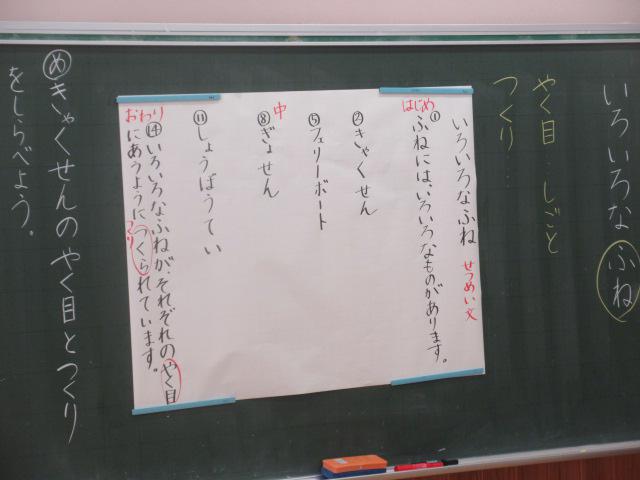 いろいろな ふね
やく目…しごと
つくり…
いろいろなふね
せつめい文
はじめ
①ふねには、いろいろなものがあります。
②きゃくせん
⑤フェリーボート
中
⑧ぎょせん
⑪しょうぼうてい
おわり
⑭いろいろなふねが、それぞれのやく目
にあうようにつくられています。
つくり
めきゃくせんのやく目とつくり
をしらべよう。